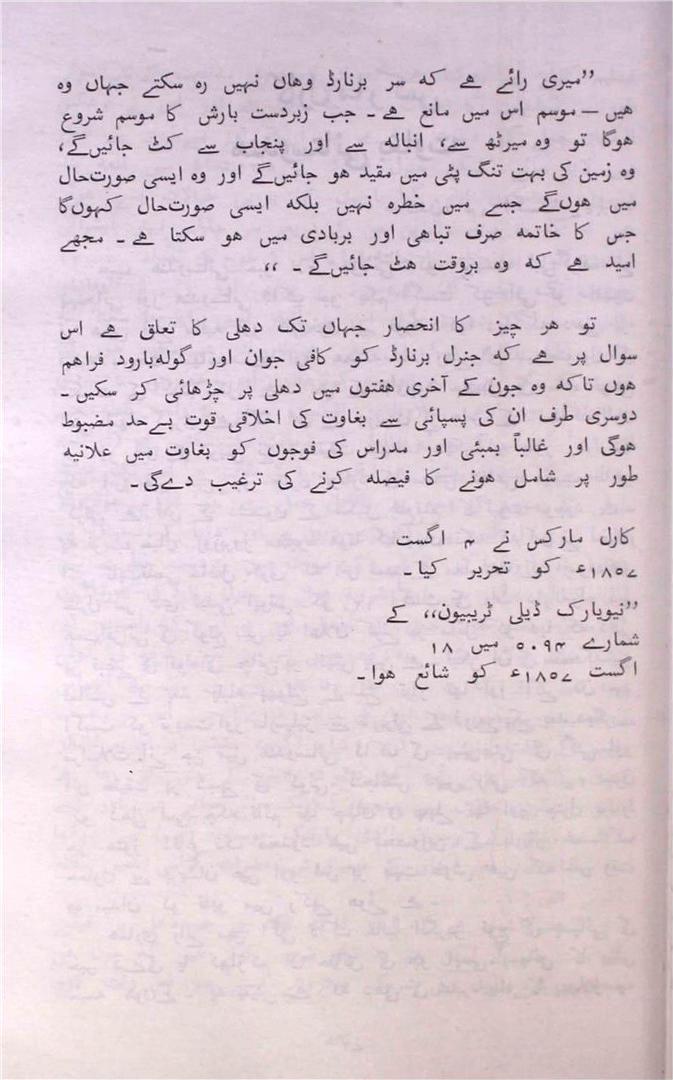 ”میری رائے ھے کہ سر برنارڈ وھاں نہیں رہ سکتے جہاں وہ
ھیں — موسم اس میں مانع ھے ۔ جب زبردست بارش کا موسم شروع
ھوگا تو وہ میرٹھ سے، انبالہ سے اور پنجاب سے کٹ جائیں گے،
وہ زمین کی بہت تنگ پٹی میں مقید ھو جائیں گے اور وہ ایسی صورت حال
میں ھوں گے جسے میں خطرہ نہیں بلکہ ایسی صورت حال کہوں گا
جس کا خاتمہ صرف تباھی اور بربادی میں ھو سکتا ھے ۔ مجھے
امید ھے کہ وہ بروقت ھٹ جائیں گے ۔ ،،
تو ھر چیز کا انحصار جہاں تک دھلی کا تعلق ھے اس
سوال پر ھے کہ جنرل برنارڈ کو کافی جوان اور گولہ بارود فراھم
ھوں تاکہ وہ جون کے آخری ھفتوں میں دھلی پر چڑھائی کر سکیں ۔
دوسری طرف ان کی پسپائی سے بغاوت کی اخلاقی قوت بے حد مضبوط
ھوگی اور غالباً بمبئی اور مدراس کی فوجوں کو بغاوت میں علانیہ
طور پر شامل ھونے کا فیصلہ کرنے کی ترغیب دے گی ۔
کارل مارکس نے ۴ اگست
۱۸۵۷ء کو تحریر کیا ۔
”نیویارک ڈیلی ٹریبیون،، کے
شمارے ۵۰۹۴ میں ۱۸
اگست ۱۸۵۷ء کو شائع ھوا ۔